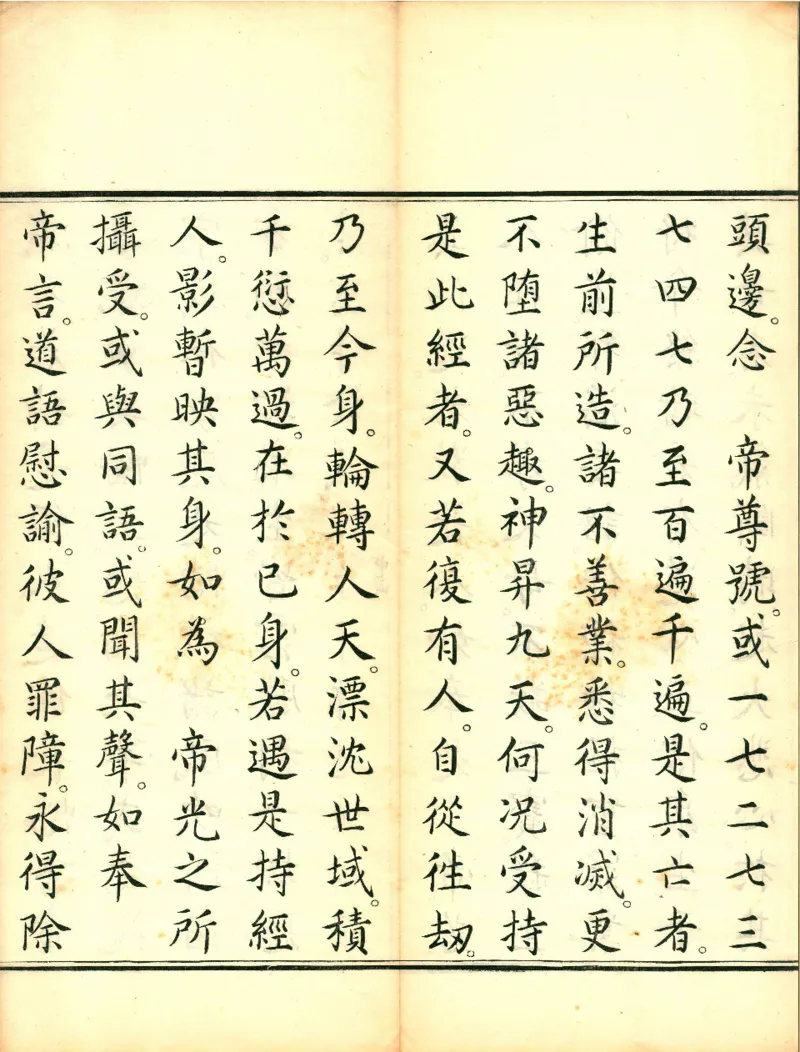 頭邊。念　帝尊號。或一七二七三
七四七乃至百遍千遍。是其亡者。
生前所造。諸不善業。悉得消滅。更
不墮諸惡趣。神昇九天。何况受持
是此經者。又若復有人。自從徃劫。
乃至今身。輪轉人天。漂沈世域。積
千愆萬過。在於己身。若遇是持經
人。影暫映其身。如為　帝光之所
攝受。或與同語。或聞其聲。如奉
帝言。道語慰諭。彼人罪障。永得除